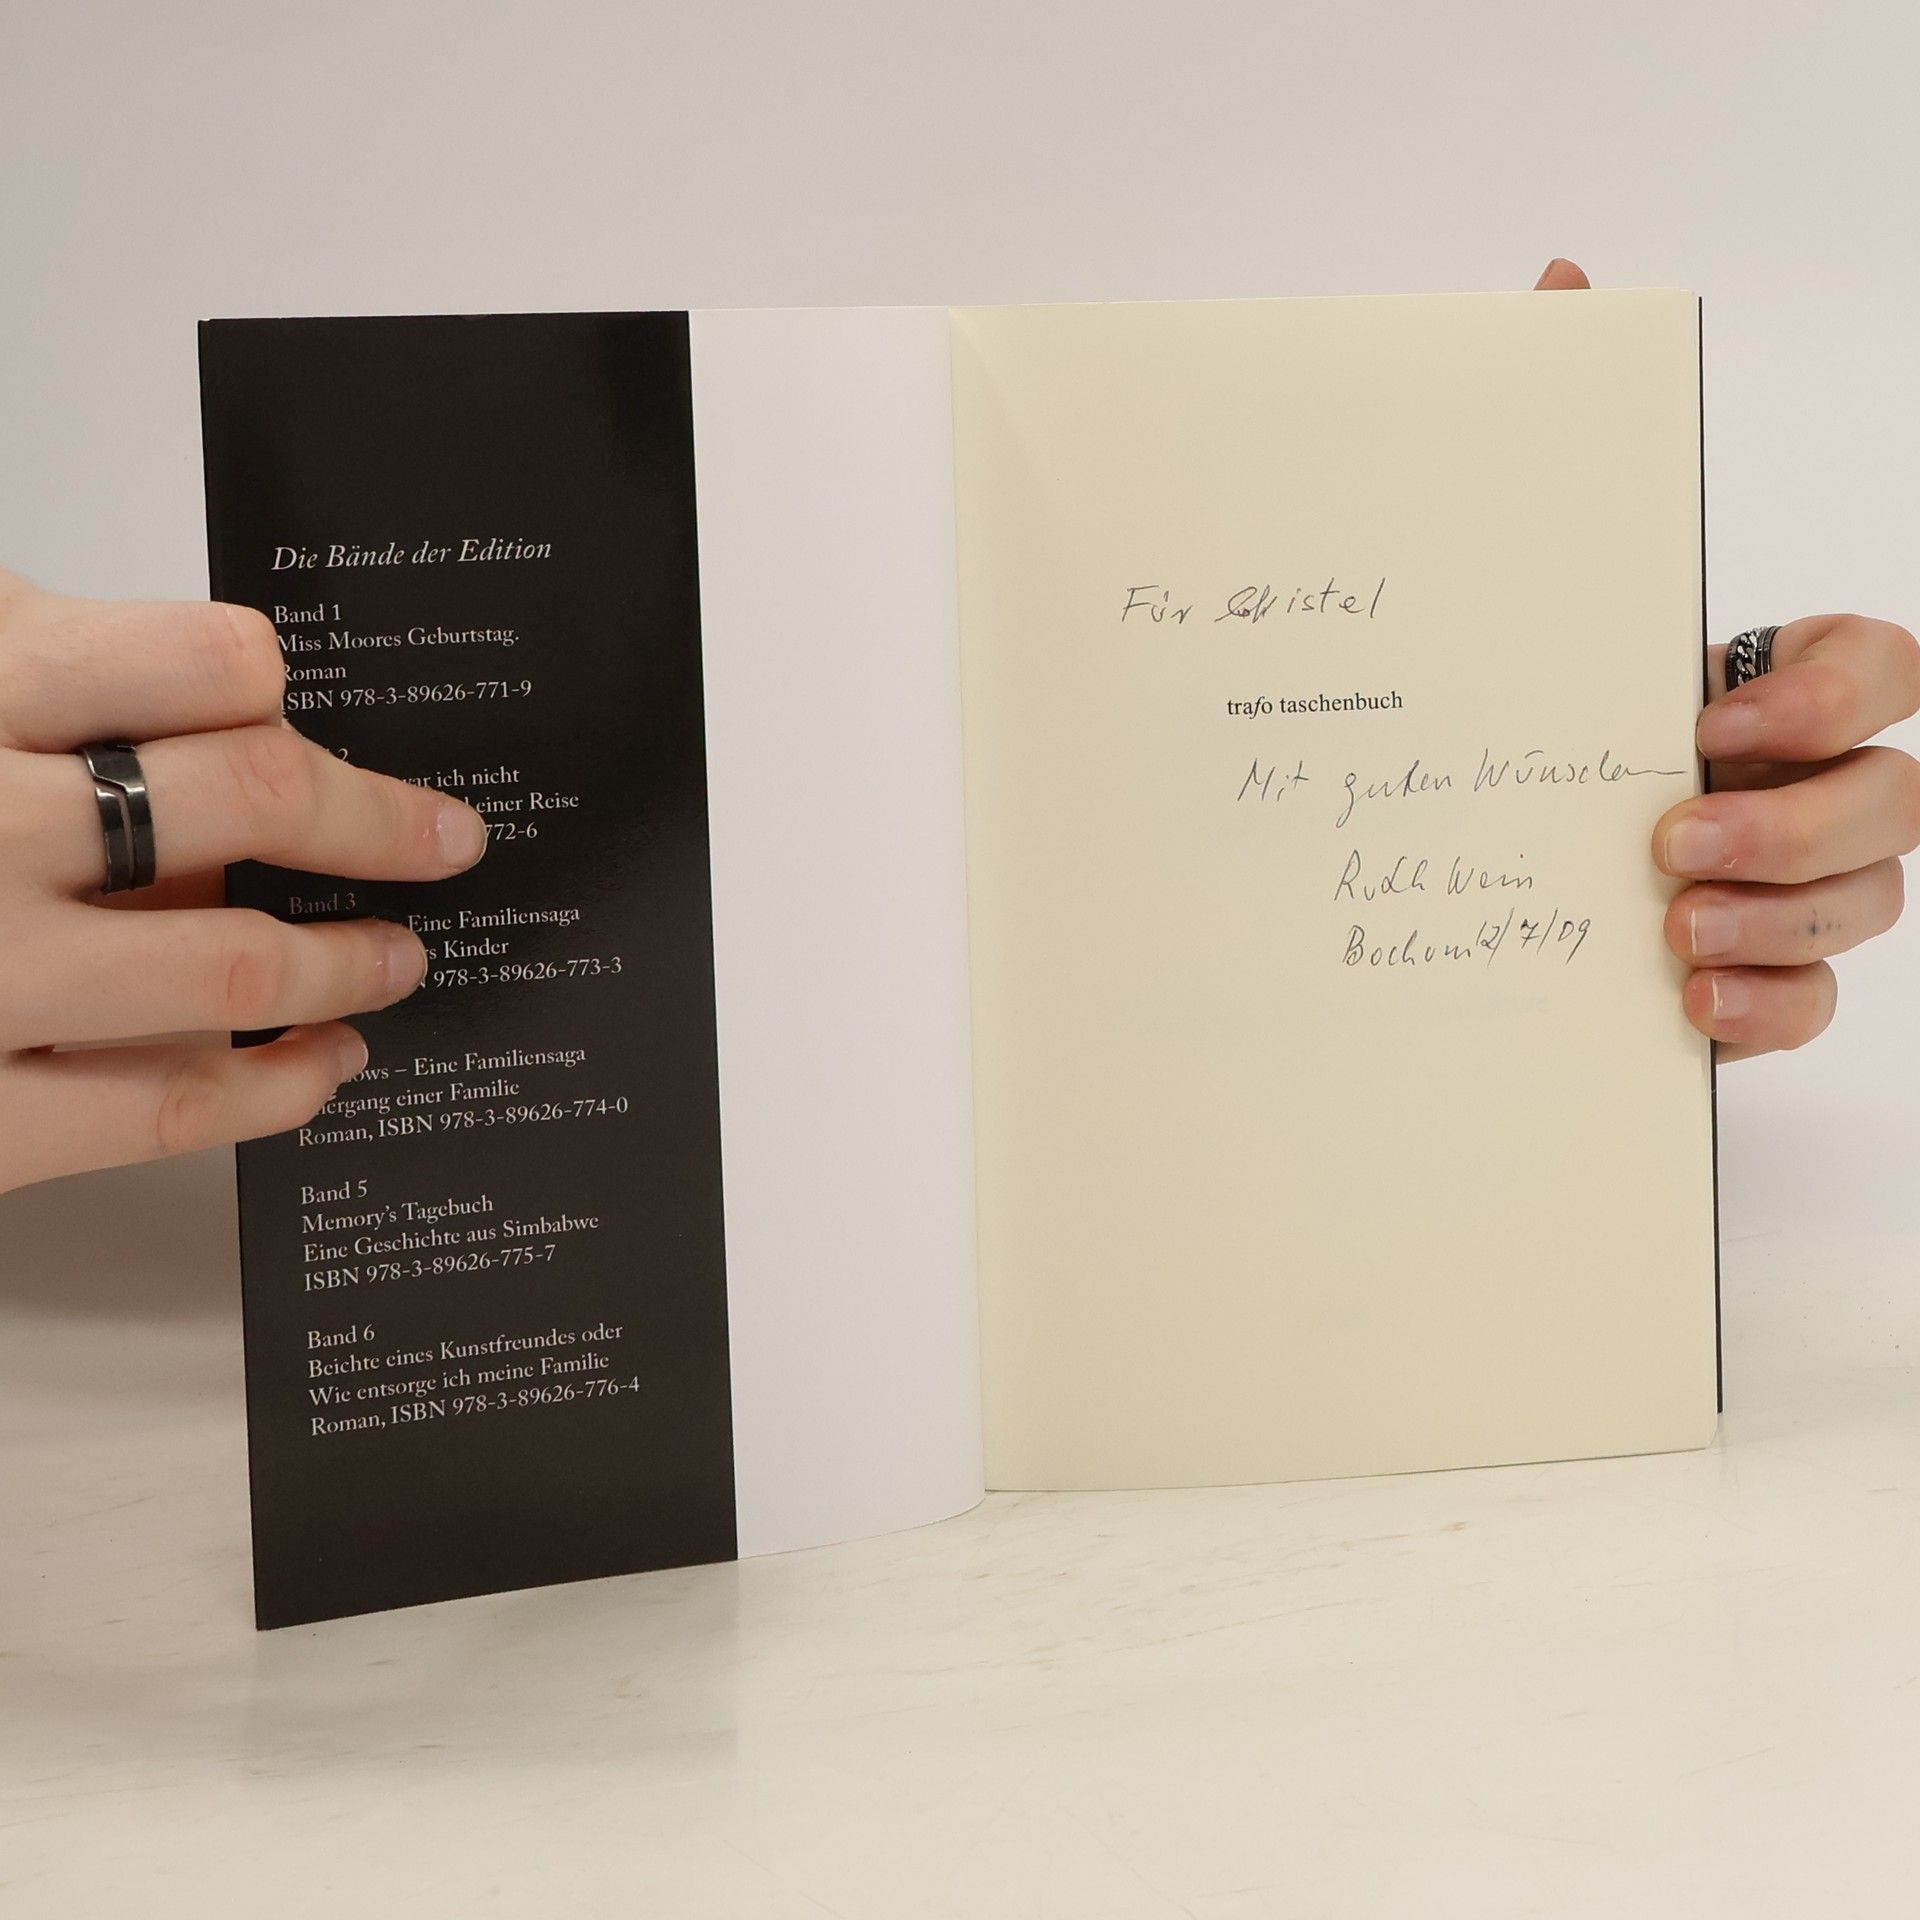 Die Bände der Edition
Band 1
Miss Moores Geburtstag.
Roman
ISBN 978-3-89626-771-9
2
ich nicht
einer Reise
772-6
Band 3
Eine Familiensaga
Kinder
978-3-89626-773-3
– Eine Familiensaga
einer Familie
Roman, ISBN 978-3-89626-774-0
Band 5
Memory's Tagebuch
Eine Geschichte aus Simbabwe
ISBN 978-3-89626-775-7
Band 6
Beichte eines Kunstfreundes oder
Wie entsorge ich meine Familie
Roman, ISBN 978-3-89626-776-4
Für Christel
trafo taschenbuch
Mit guten Wünschen
Ruth Wein
Bochum 12/7/09